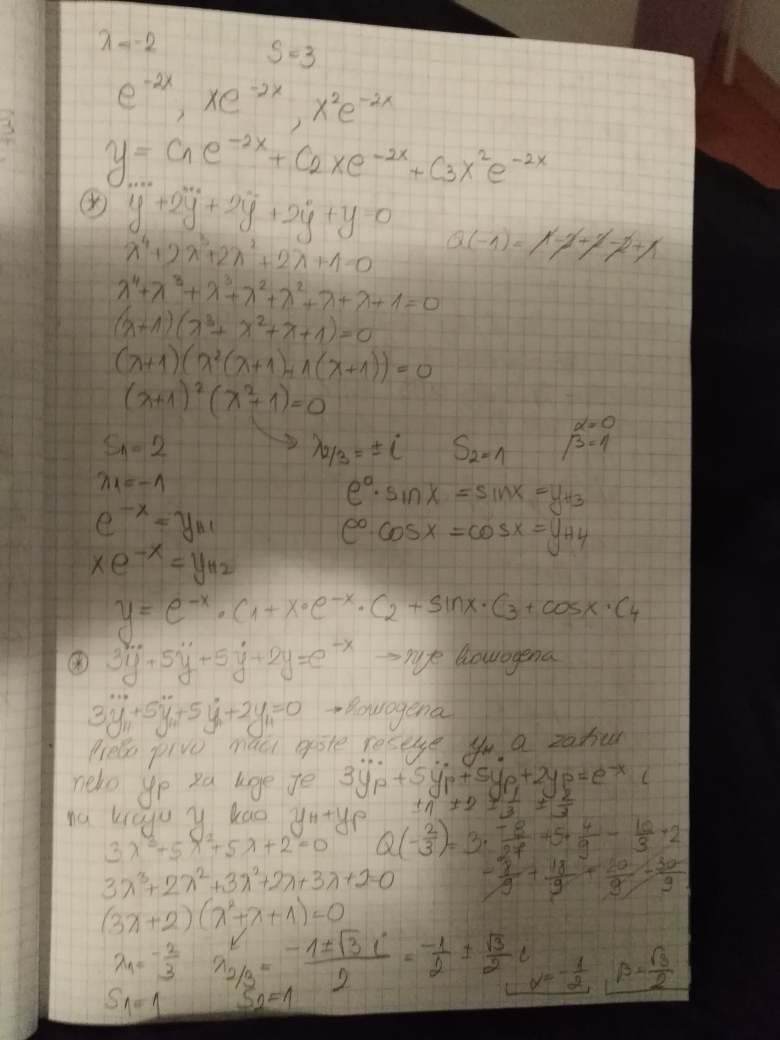 λ=-2 S=3
e^{-2x}, xe^{-2x}, x²e^{-2x}
y = C1 e^{-2x} + C2 xe^{-2x} + C3 x² e^{-2x}
⊛ y⃜ + 2y⃛ + 2ÿ + 2ẏ + y = 0
Q(-1) = 1-2+2-2+1
λ⁴+2λ³+2λ²+2λ+1=0
λ⁴+λ³+λ³+λ²+λ²+λ+λ+1=0
(λ+1)(λ³+λ²+λ+1)=0
(λ+1)(λ²(λ+1)+1(λ+1))=0
(λ+1)²(λ²+1)=0
S1=2 λ2/3=±i S2=1 α=0 β=1
λ1=-1 e⁰·sinx = sinx = yH3
e^{-x} = yH1 e⁰·cosx = cosx = yH4
xe^{-x} = yH2
y = e^{-x}·C1 + x·e^{-x}·C2 + sinx·C3 + cosx·C4
⊛ 3y⃛+5ÿ+5ẏ+2y=e^{-x} → nije homogena
3y⃛H+5ÿH+5ẏH+2yH=0 → homogena
treba prvo naći opšte rešenje yH a zatim
neko yp za koje je 3y⃛p+5ÿp+5ẏp+2yp=e^{-x} i
na kraju y kao yH+yp ±1 ±2 ±1/3 ±2/3
3λ³+5λ²+5λ+2=0 Q(-2/3)=3·-8/27+5·4/9-10/3+2
3λ³+2λ²+3λ²+2λ+3λ+2=0
(3λ+2)(λ²+λ+1)=0
λ1=-2/3 λ2/3 = (-1±√3 i)/2 = -1/2 ± √3/2 i
S1=1 S2=1 α=-1/2 β=√3/2